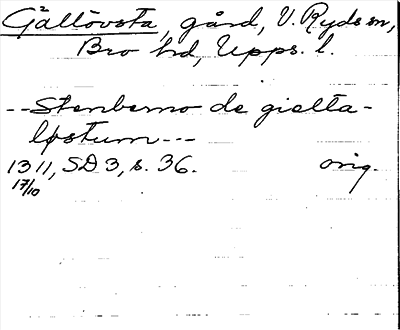 Gällövsta, gård, V. Ryds sn,
Bro hd, Upps. l.
-- Stenberno de gielta-
løstum ---
1311, SD 3, s. 36. orig.
17/10